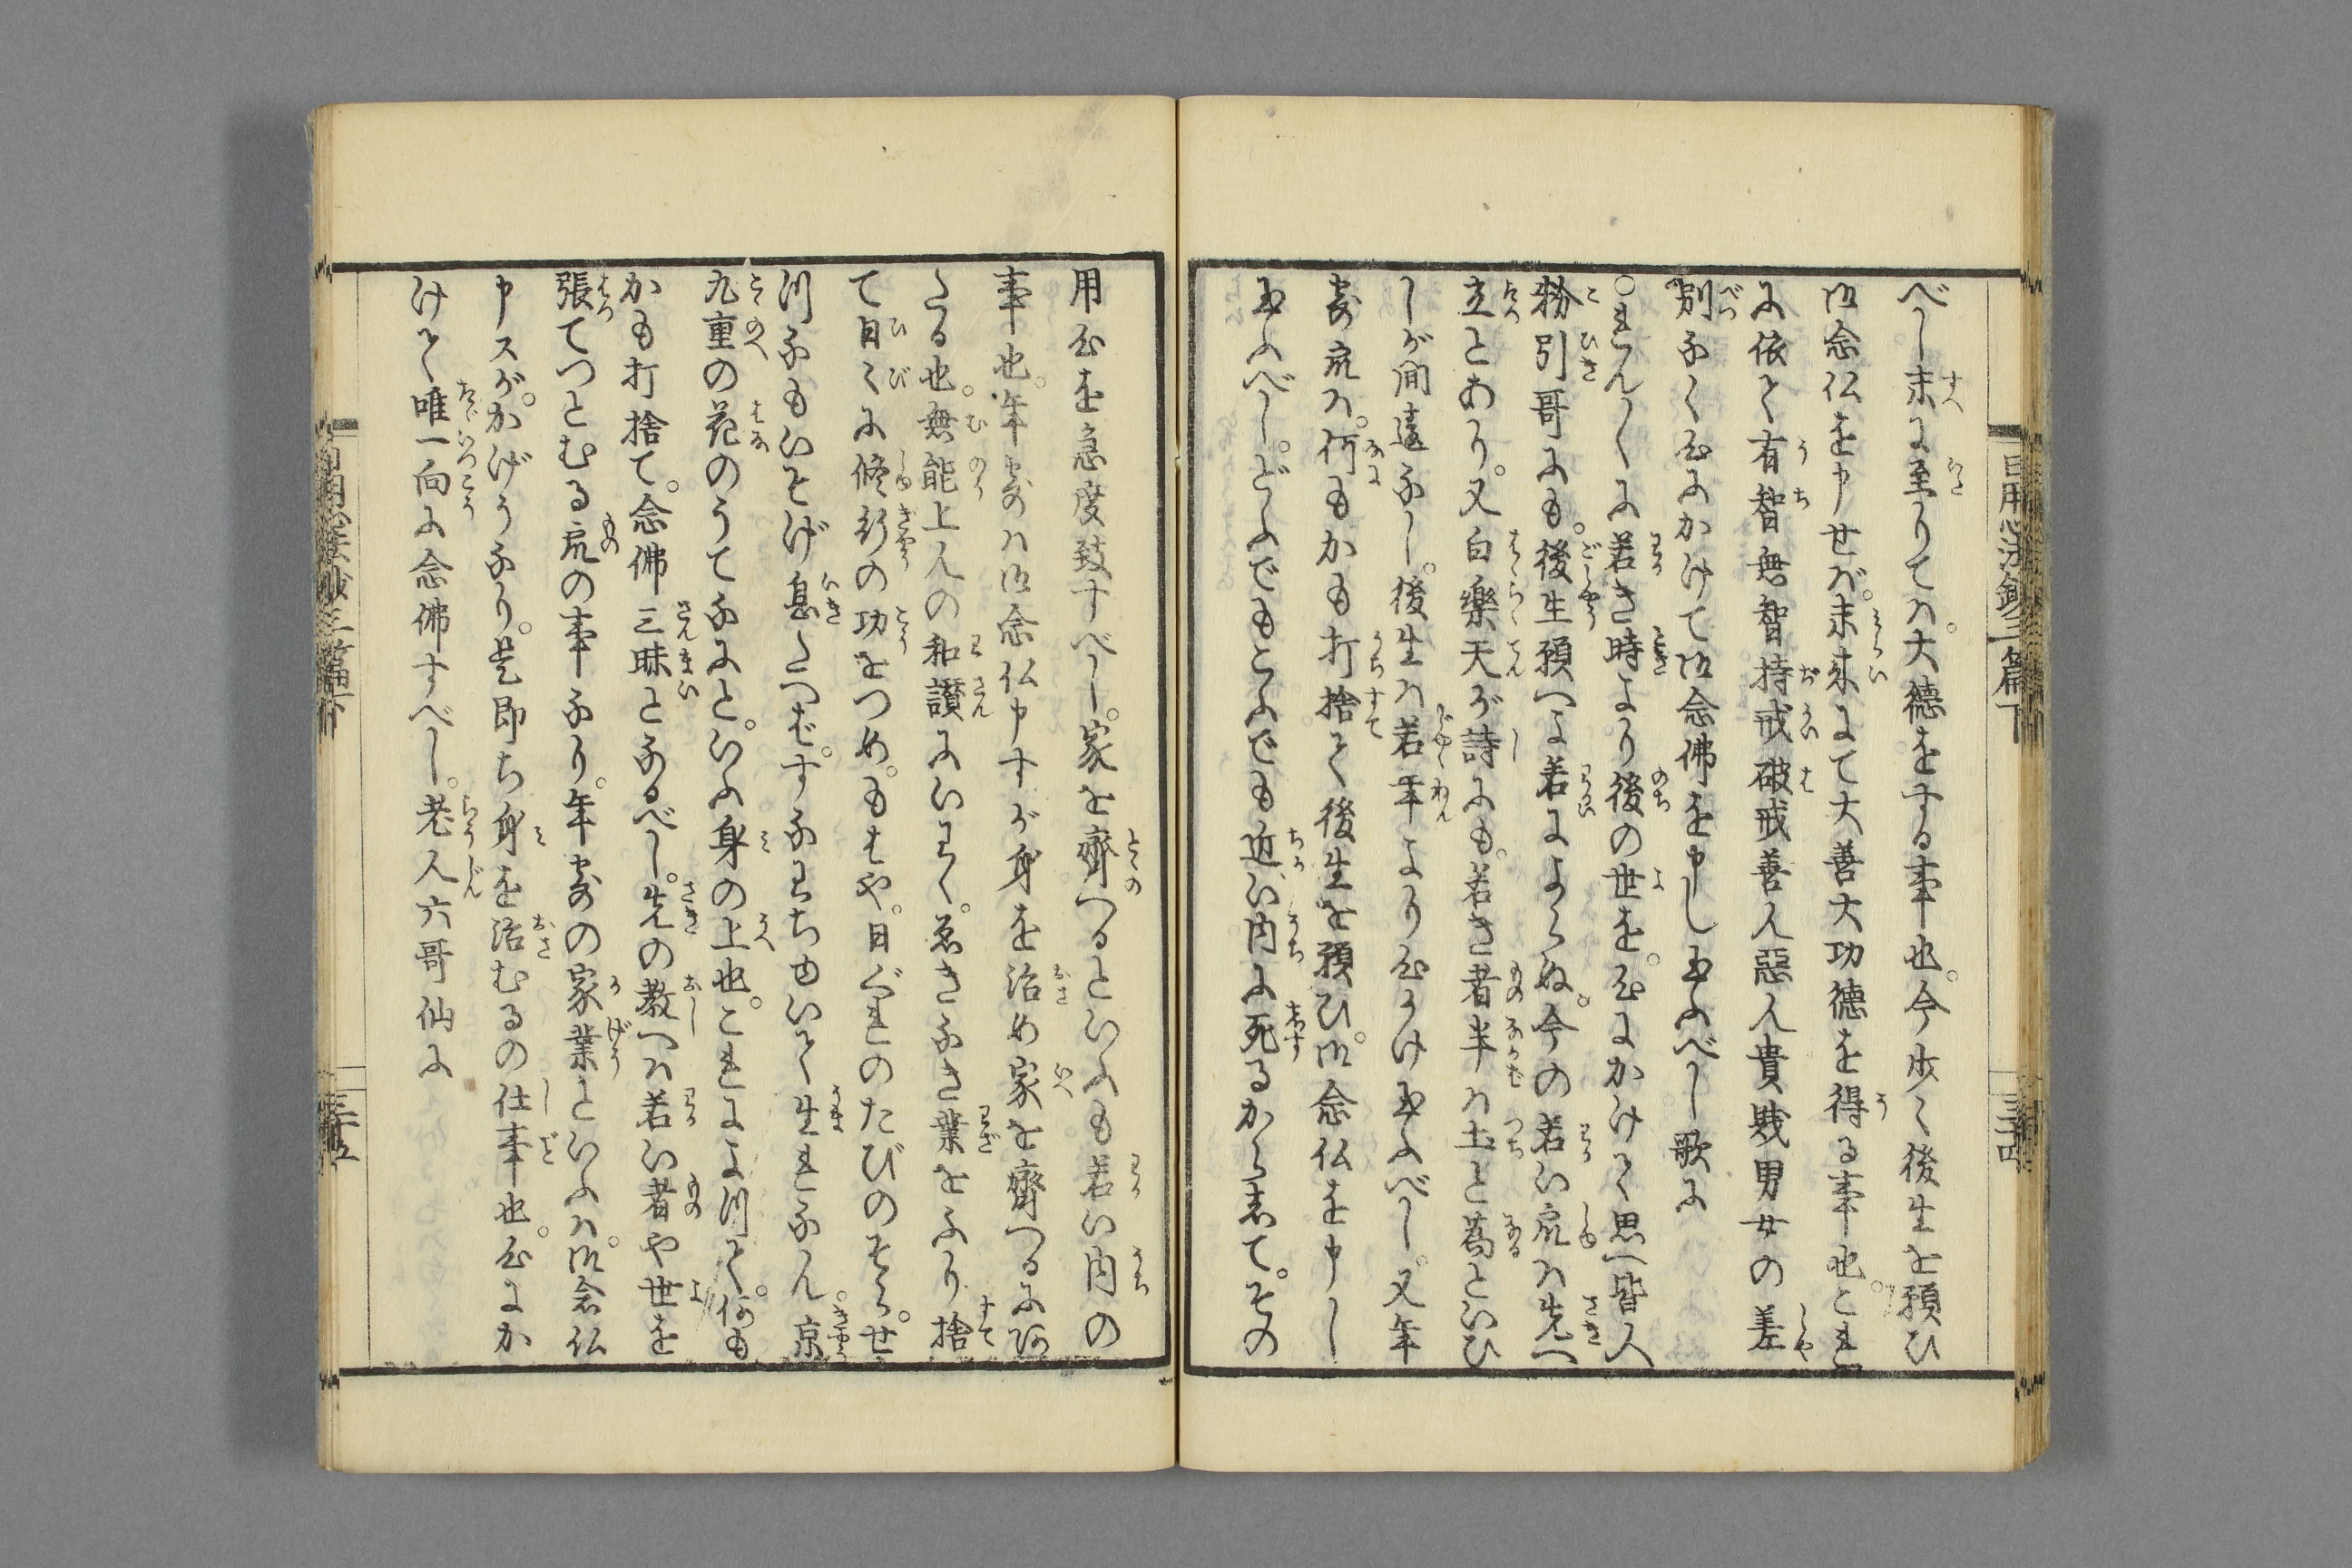 日用心法鈔三篇下
三十四
べし末に至りてハ。大徳をする事也。今少く後生を願ひ
御念仏を申せバ。未来にて大善大功徳を得る事也。これ
に依て有智無智持戒破戒善人惡人貴賤男女の差
別なく心にかけて御念佛を申し玉ふべし歌に
○たんだんに若き時より後の世を。心にかけて思へ皆人
粉引哥にも。後生願へよ若によらぬ。今の若い衆ハ先へ
立とあり。又白樂天が詩にも。若き者半ハ土と為といひ
しが間違なし。後生ハ若年より心がけ玉ふべし。又年
寄衆ハ。何もかも打捨て後生を願ひ。御念仏を申し
玉ふべし。どふでもこふでも近い内に死るから。おして。その
用心を急度致すべし。家を齊へるといふも若い内の
事也。年寄ハ御念仏申すが身を治め家を齊へるに何
たる也。無能上人の和讃にいわく。悪きなき業をふり捨
て日々に修行の功をつめ。もはや。日ぐれのたびのそら。せ
渕なもいそげ息たつぞ。すなわちゆいて生れなん。京
九重の花のうてなにと。いふ身の上也。これによつて。何も
かも打捨て。念佛三昧となるべし。先の教へハ若い者や世を
張てつとむる衆の事なり。年寄の家業といふハ。御念仏
申スが。かげうなり。是即ち身を治むるの仕事也。心にか
けて唯一向に念佛すべし。老人六哥仙に
三十五